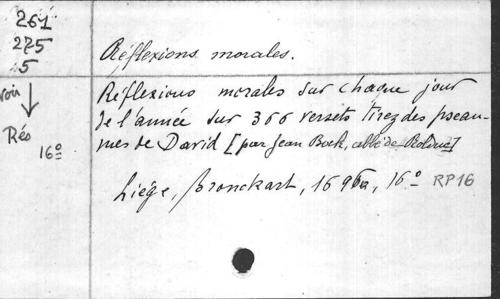 261
275
5
voir
Rés
16º
Réflexions morales.
Réflexions morales sur chaque jour
de l'année sur 366 versets tirez des pseau-
mes de David [par Jean Bock, abbé de Rolduc]
Liége, Bronckart, 1696, 16º RP16